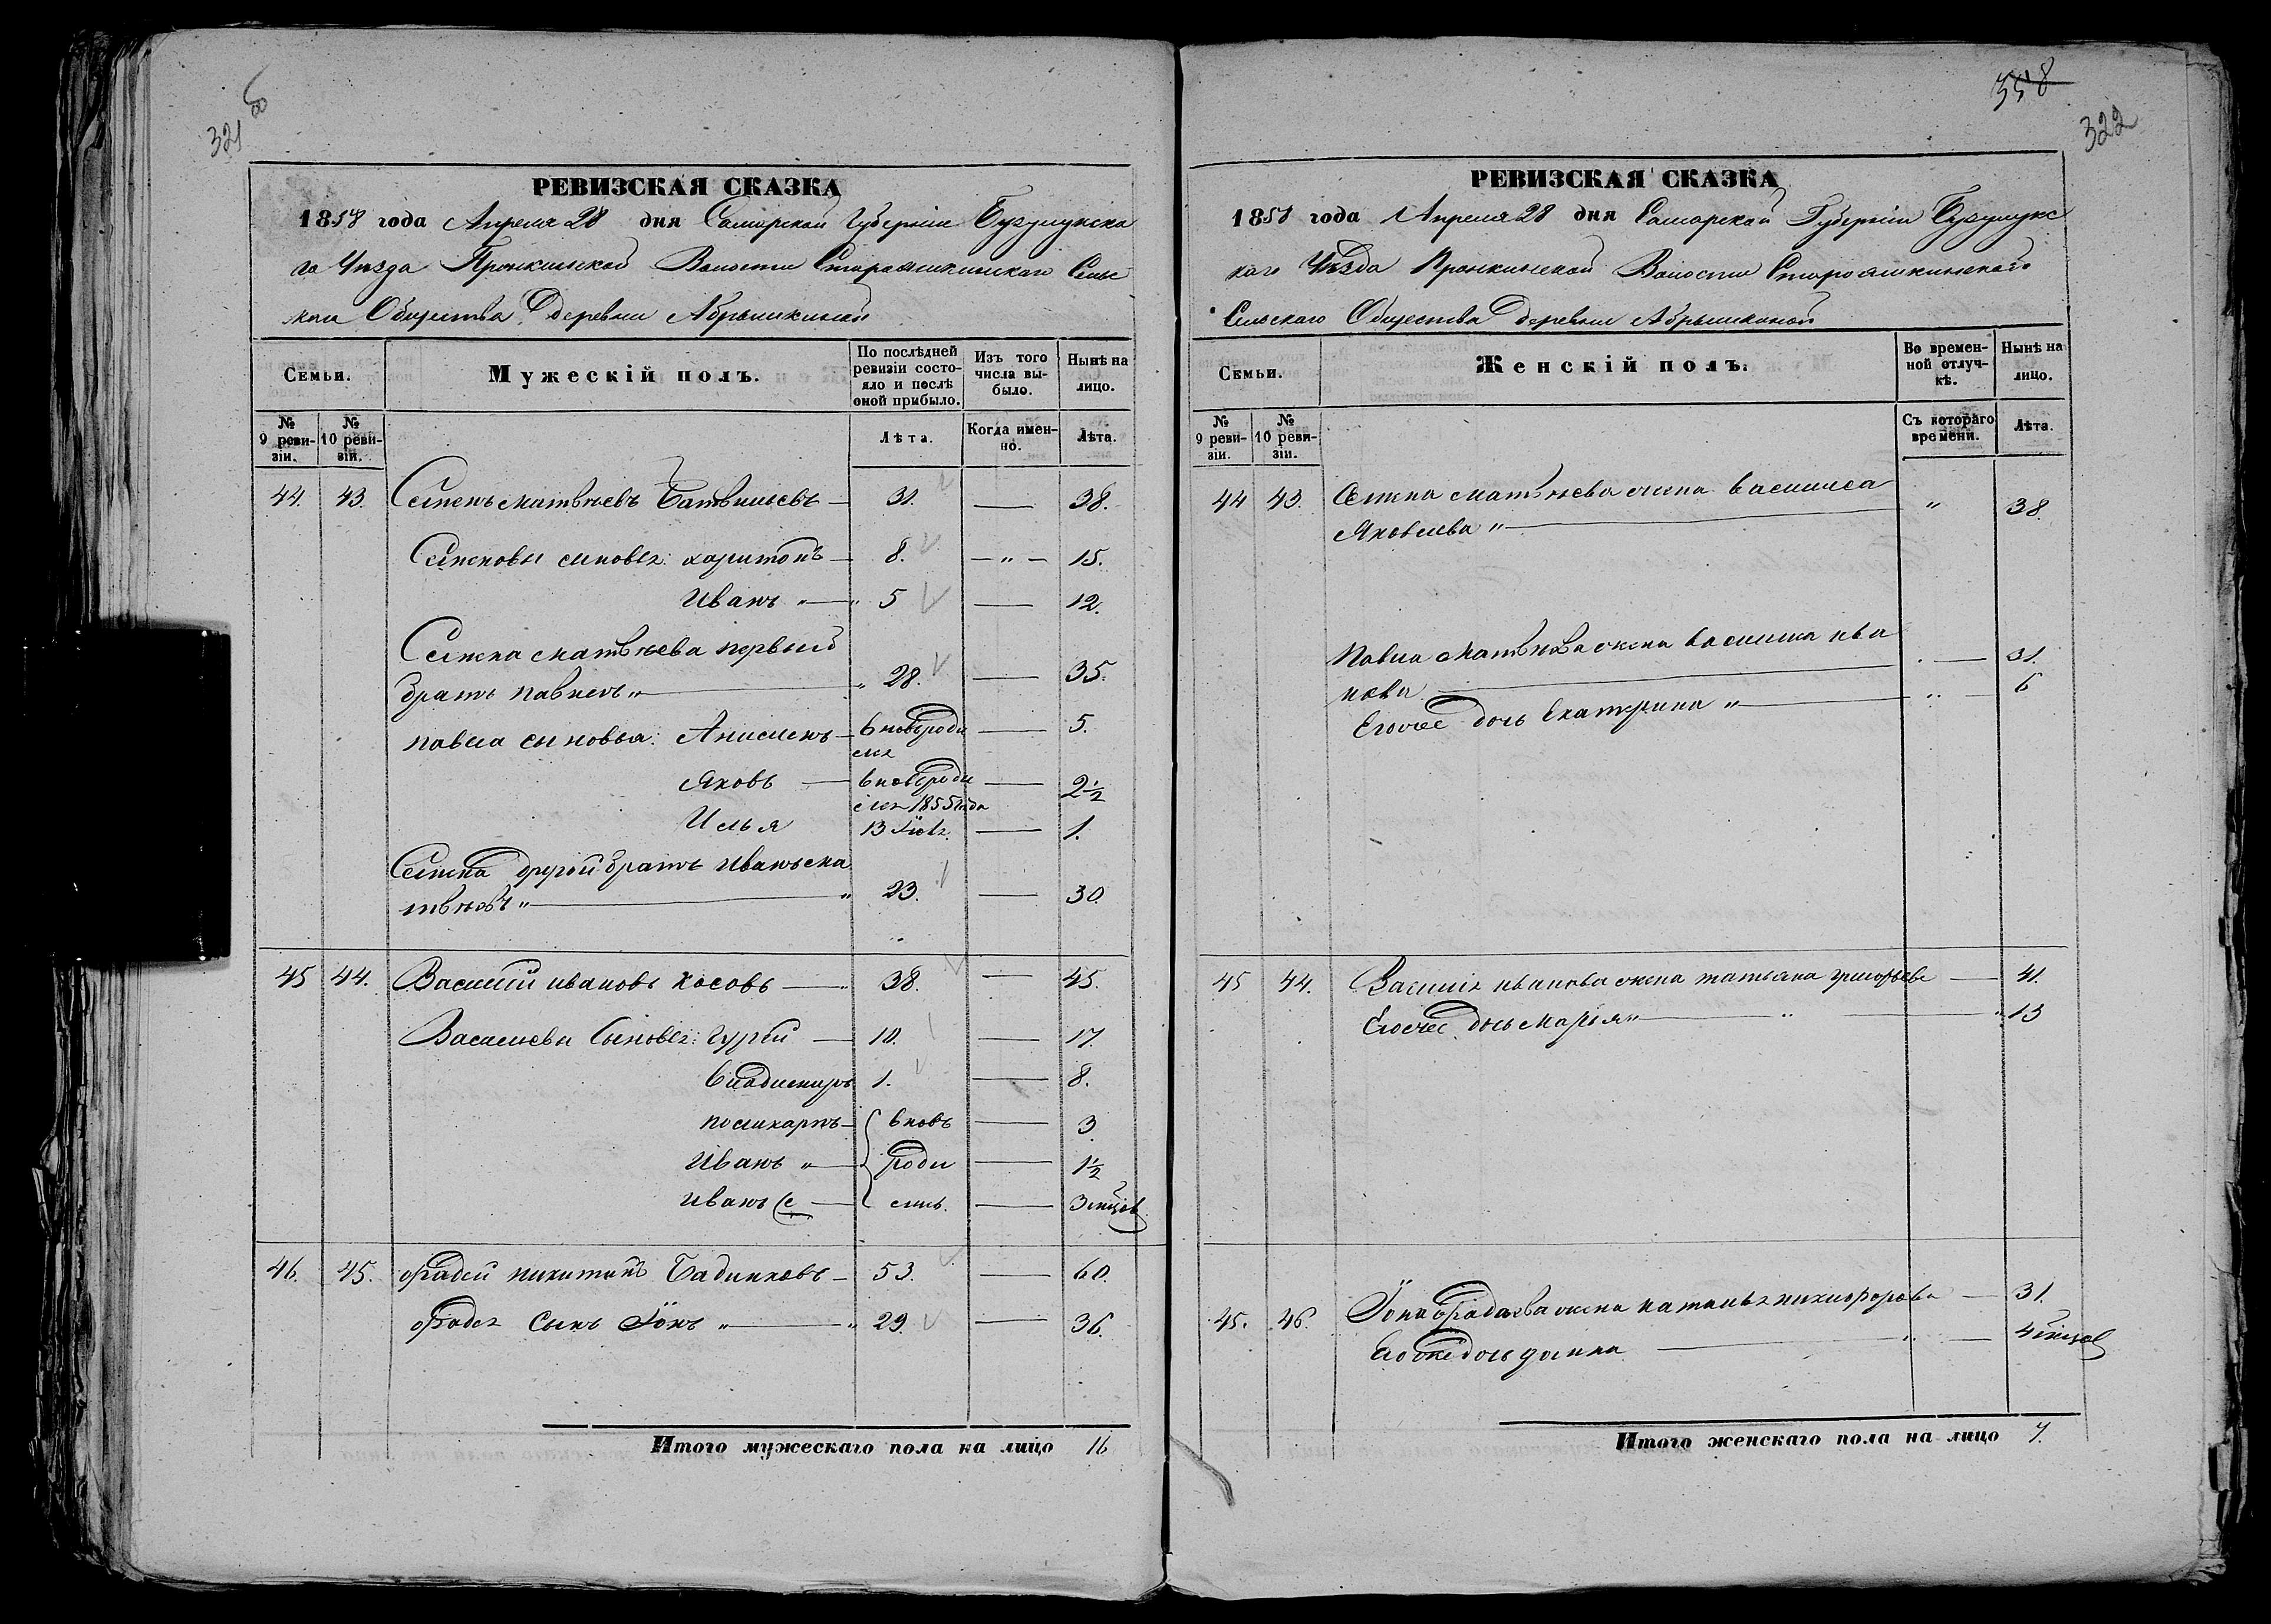 321 об
РЕВИЗСКАЯ СКАЗКА
1858 года Апреля 28 дня Самарской Губерніи Бузулукска
го Уѣзда Пронкинской Волости Старояшкинскаго Сельс
каго Общества Деревни Абрышкиной
Семьи.
Мужескій полъ.
По послѣдней ревизіи состояло и послѣ оной прибыло.
Изъ того числа выбыло.
Нынѣ на лицо.
№ 9 ревизіи.
№ 10 ревизіи.
Лѣта.
Когда именно.
Лѣта.
44. 43. Семенъ Матвѣевъ 31. — 38.
Семеновы сыновья: харитонъ — 8. — „ — 15.
Иванъ „ — 5 — 12.
Семена Матвѣева первый
братъ павелъ „ — 28. — 35.
павла сыновья: Анисимъ — вновь роди — 5.
лся
Яковъ — вновь роди — 2½
лся 1855 года
Илья — 1.
Семена другой братъ Иванъ Ма
твѣевъ „ — 23. — 30.
45 44. Василий ивановъ Косовъ — 38. — 45.
Васильевы Сыновья: Гурій — 10. — 17.
владимиръ 1. — 8.
поликарпъ — вновь — 3
Иванъ „ — роди — 1½
Иванъ — лись. — 3 мѣсяц
46. 45. Фадей никитинъ — 53. — 60.
Фадея Сынъ Іонъ „ — 29. — 36.
Итого мужескаго пола на лицо 16
358
322
РЕВИЗСКАЯ СКАЗКА
1858 года Апреля 28 дня Самарской Губерніи Бузулукс
каго Уѣзда Пронкинской Волости Старояшкинскаго
Сельскаго Общества Деревни Абрышкиной
Семьи.
Женскій полъ.
Во временной отлучкѣ.
Нынѣ на лицо.
№ 9 ревизіи.
№ 10 ревизіи.
Съ котораго времени.
Лѣта.
44 43. Семена Матвѣева жена василиса „ 38.
Яковлева „ —
Павла Матвѣева жена василиса ива — 31.
нова —
Его же дочь Екатерина „ — 6
45 44. Василия иванова жена татьяна григорьева — 41.
Его же дочь Марья „ — 13
45. 46. Іона Фадеева жена наталья никифорова — 31.
Его же дочь — 4 мѣсяц
Итого женскаго пола на лицо 7.